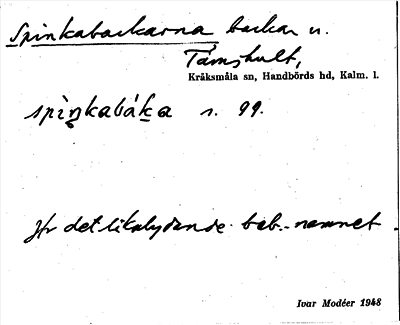 Spinkabackarna backar n.
Tämshult,
Kråksmåla sn, Handbörds hd, Kalm. l.
spìŋkabák̲a s. 99.
Jfr det likalydande beb.-namnet.
Ivar Modéer 1948